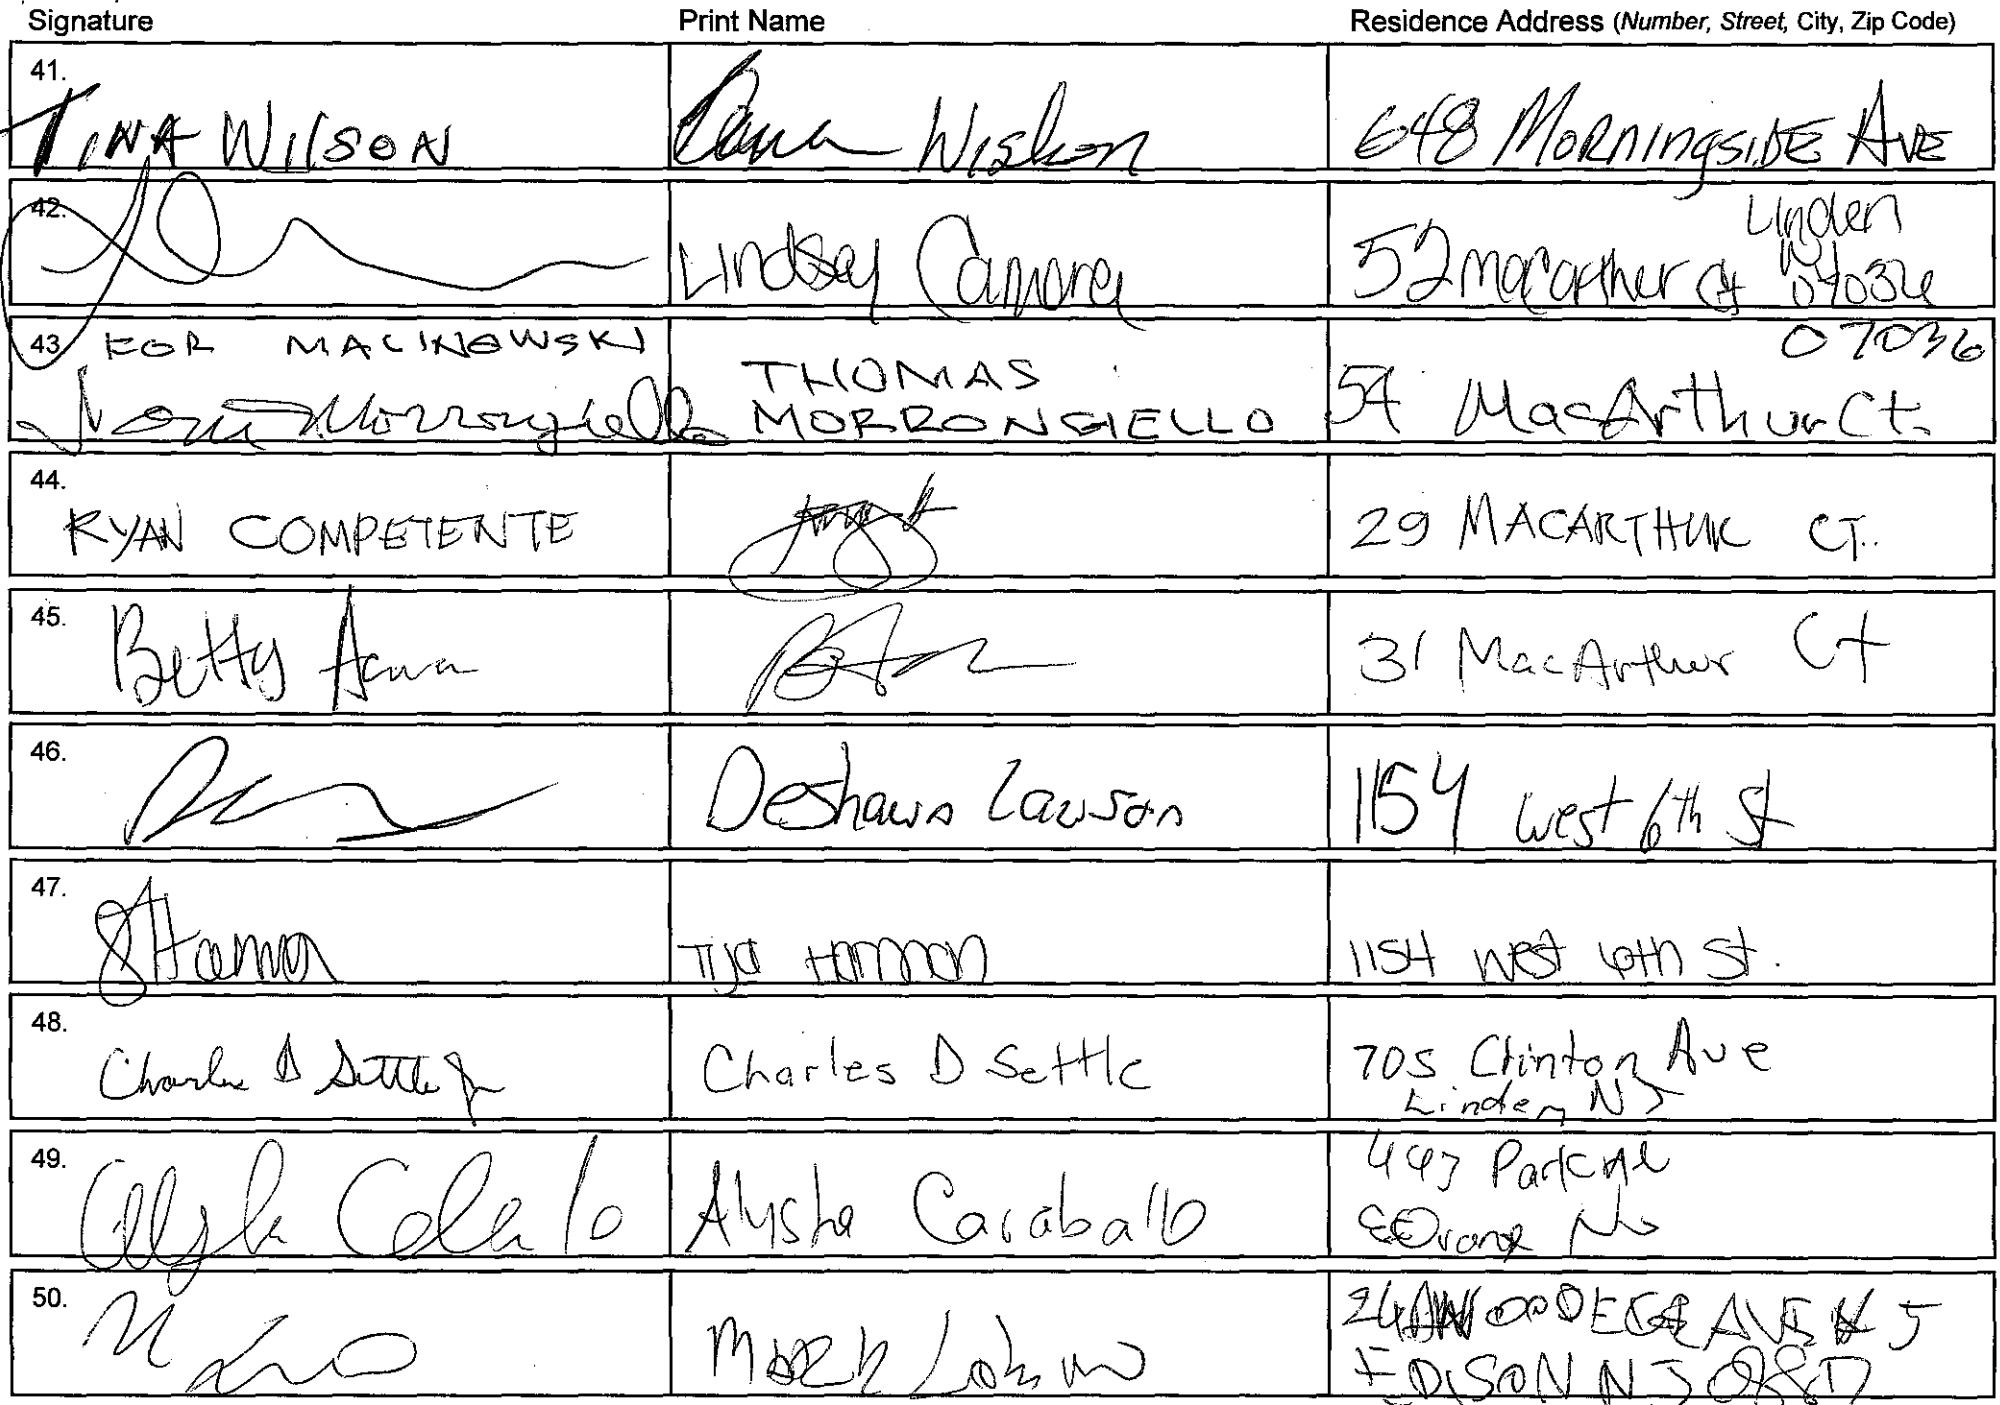 Signature Print Name Residence Address (Number, Street, City, Zip Code)
41. TINA WILSON 648 MORNINGSIDE AVE
42. Lindsey 52 macarther ct Linden NJ 07036
43. FOR MALINOWSKI
THOMAS MORRONGIELLO 54 MacArthur Ct. 07036
44. RYAN COMPETENTE 29 MACARTHUR CT.
45. Betty 31 MacArthur Ct
46. Deshawn Lawson 1154 west 6th St
47. Harmon 1154 west 6th St.
48. Charles D Settle Jr Charles D Settle 705 Clinton Ave
Linden NJ
49. Alysha Caraballo Park
50. Mark AVE
EDISON NJ